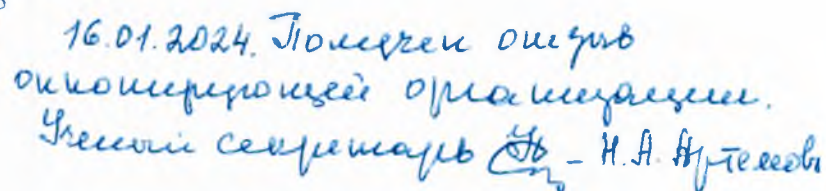 16.01.2024. Получен отзыв
оппонирующей организации.
Ученый секретарь - Н.А. Артемова